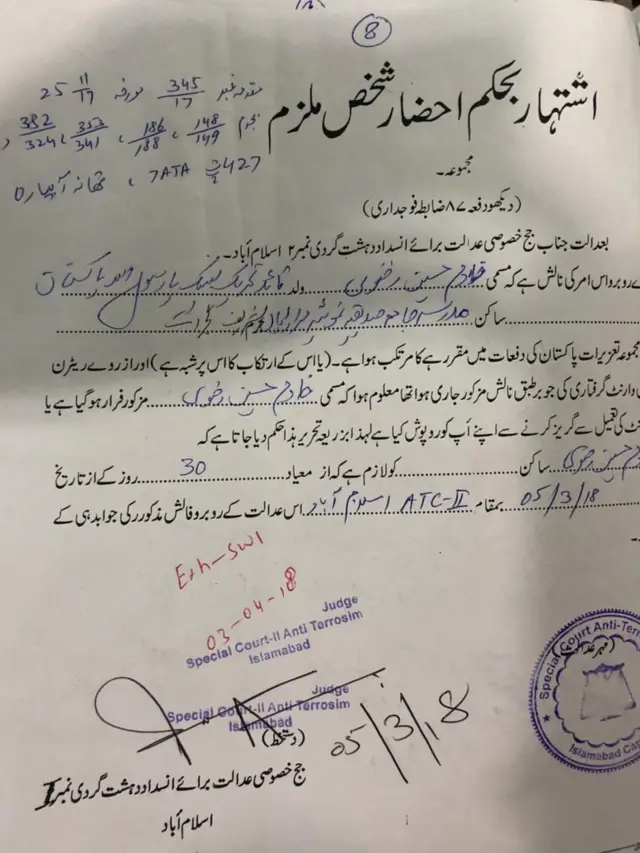 8
اشتہار بحکم احضار شخص ملزم
مقدمہ نمبر 345/17 مورخہ 25 11/17
بجرم 148/149، 186/188، 353/341، 382/324
427، 7ATA، تھانہ آبپارہ
مجموعہ۔
(دیکھو دفعہ ۸۷ ضابطہ فوجداری)
بعدالت جناب جج خصوصی عدالت برائے انسداد دہشت گردی نمبر ۲ اسلام آباد۔
روبرو اس امر کی نالش ہے کہ مسمی خادم حسین رضوی ولد قائد تحریک لبیک یا رسول اللہ پاکستان
ساکن مدرسہ
مجموعہ تعزیرات پاکستان کی دفعات میں مقرر ہے کا مرتکب ہوا ہے۔ (یا اس کے ارتکاب کا اس پر شبہ ہے) اور از روے ریٹرن
وارنٹ گرفتاری کی جو برطبق نالش مزکور جاری ہوا تھا معلوم ہوا کہ مسمی خادم حسین رضوی مزکور فرار ہو گیا ہے یا
کی تعمیل سے گریز کرنے سے اپنے آپ کو روپوش کیا ہے لہذا بزریعہ تحریر ہذا حکم دیا جاتا ہے کہ
حسین رضوی ساکن کو لازم ہے کہ از معیاد 30 روز کے از تاریخ
05/3/18 بمقام ATC-II اسلام آباد اس عدالت کے روبرو فالش مذکورر کی جوابدہی کے
Exh-SW1
03-04-18
Judge
Special Court-II Anti Terrosim
Islamabad
Judge
Special Court-II Anti Terrosim
Islamabad
05/3/18
(دستخط)
(مہر عدالت)
Special Court Anti-Terro
Islamabad Cap
جج خصوصی عدالت برائے انسداد دہشت گردی نمبر II
اسلام آباد